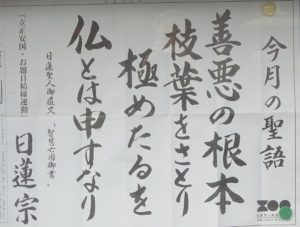 今月の聖語
善悪の根本
枝葉をさとり
極めたるを
仏とは申すなり
日蓮聖人御遺文『智慧亡国御書』
「立正安国・お題目結縁運動」
日蓮宗